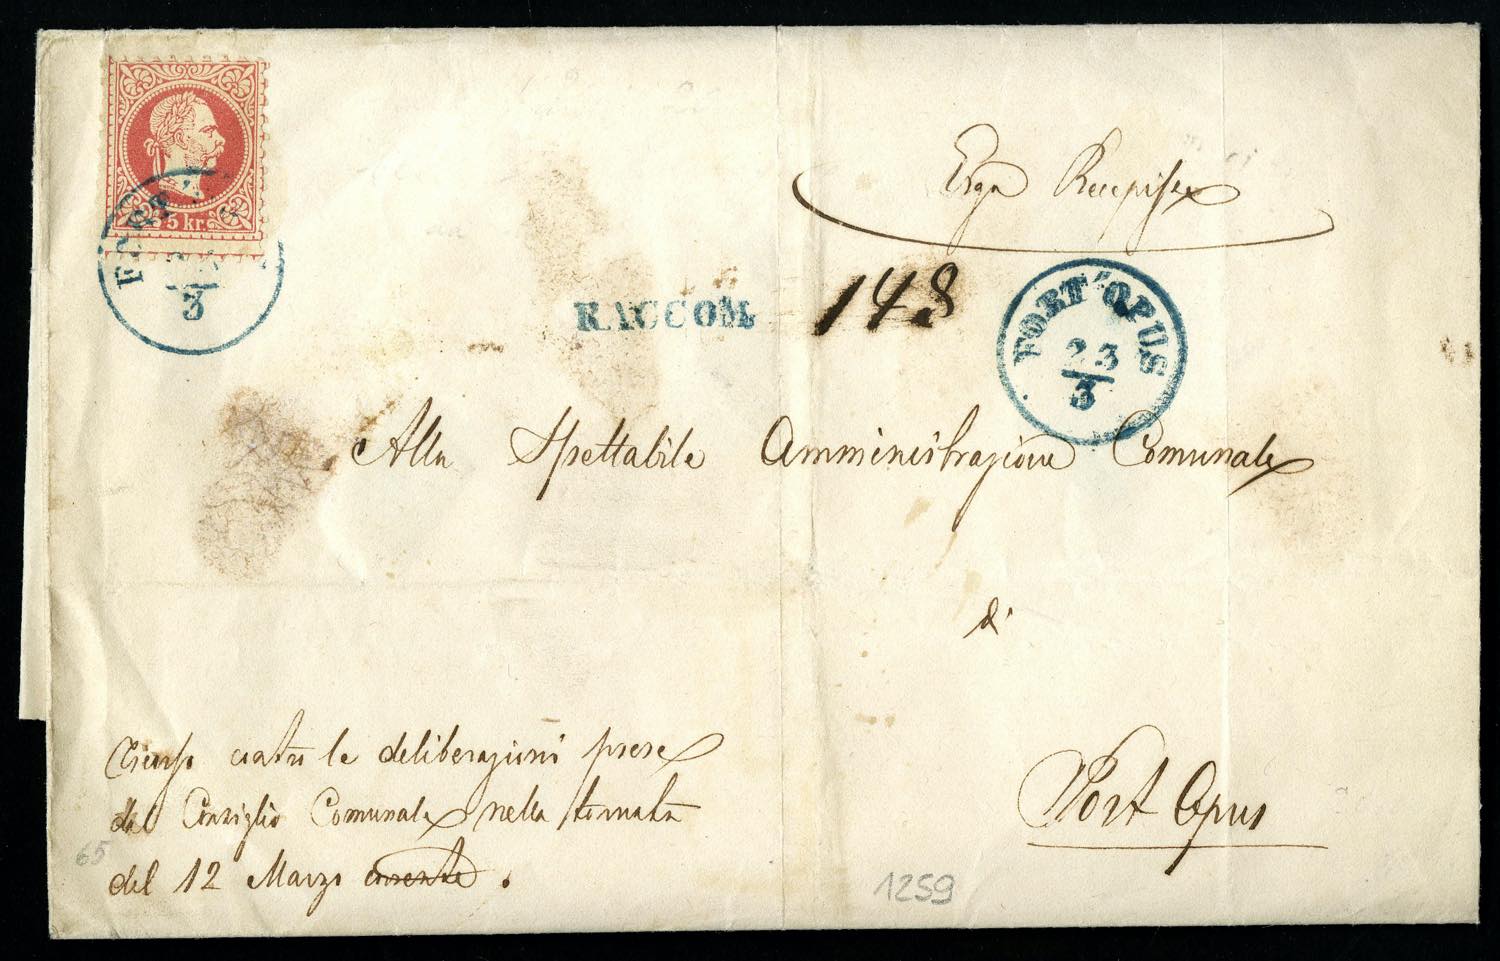 5 kr.
Erga Recepisse
RACCOM.
148
FORT' OPUS
23
3
FORT
3
Alla Spettabile Amministrazione Comunale
di
Port Opus
le deliberazioni prese
dal Consiglio Comunale nella tornata
del 12 Marzo corrente.
65
1259